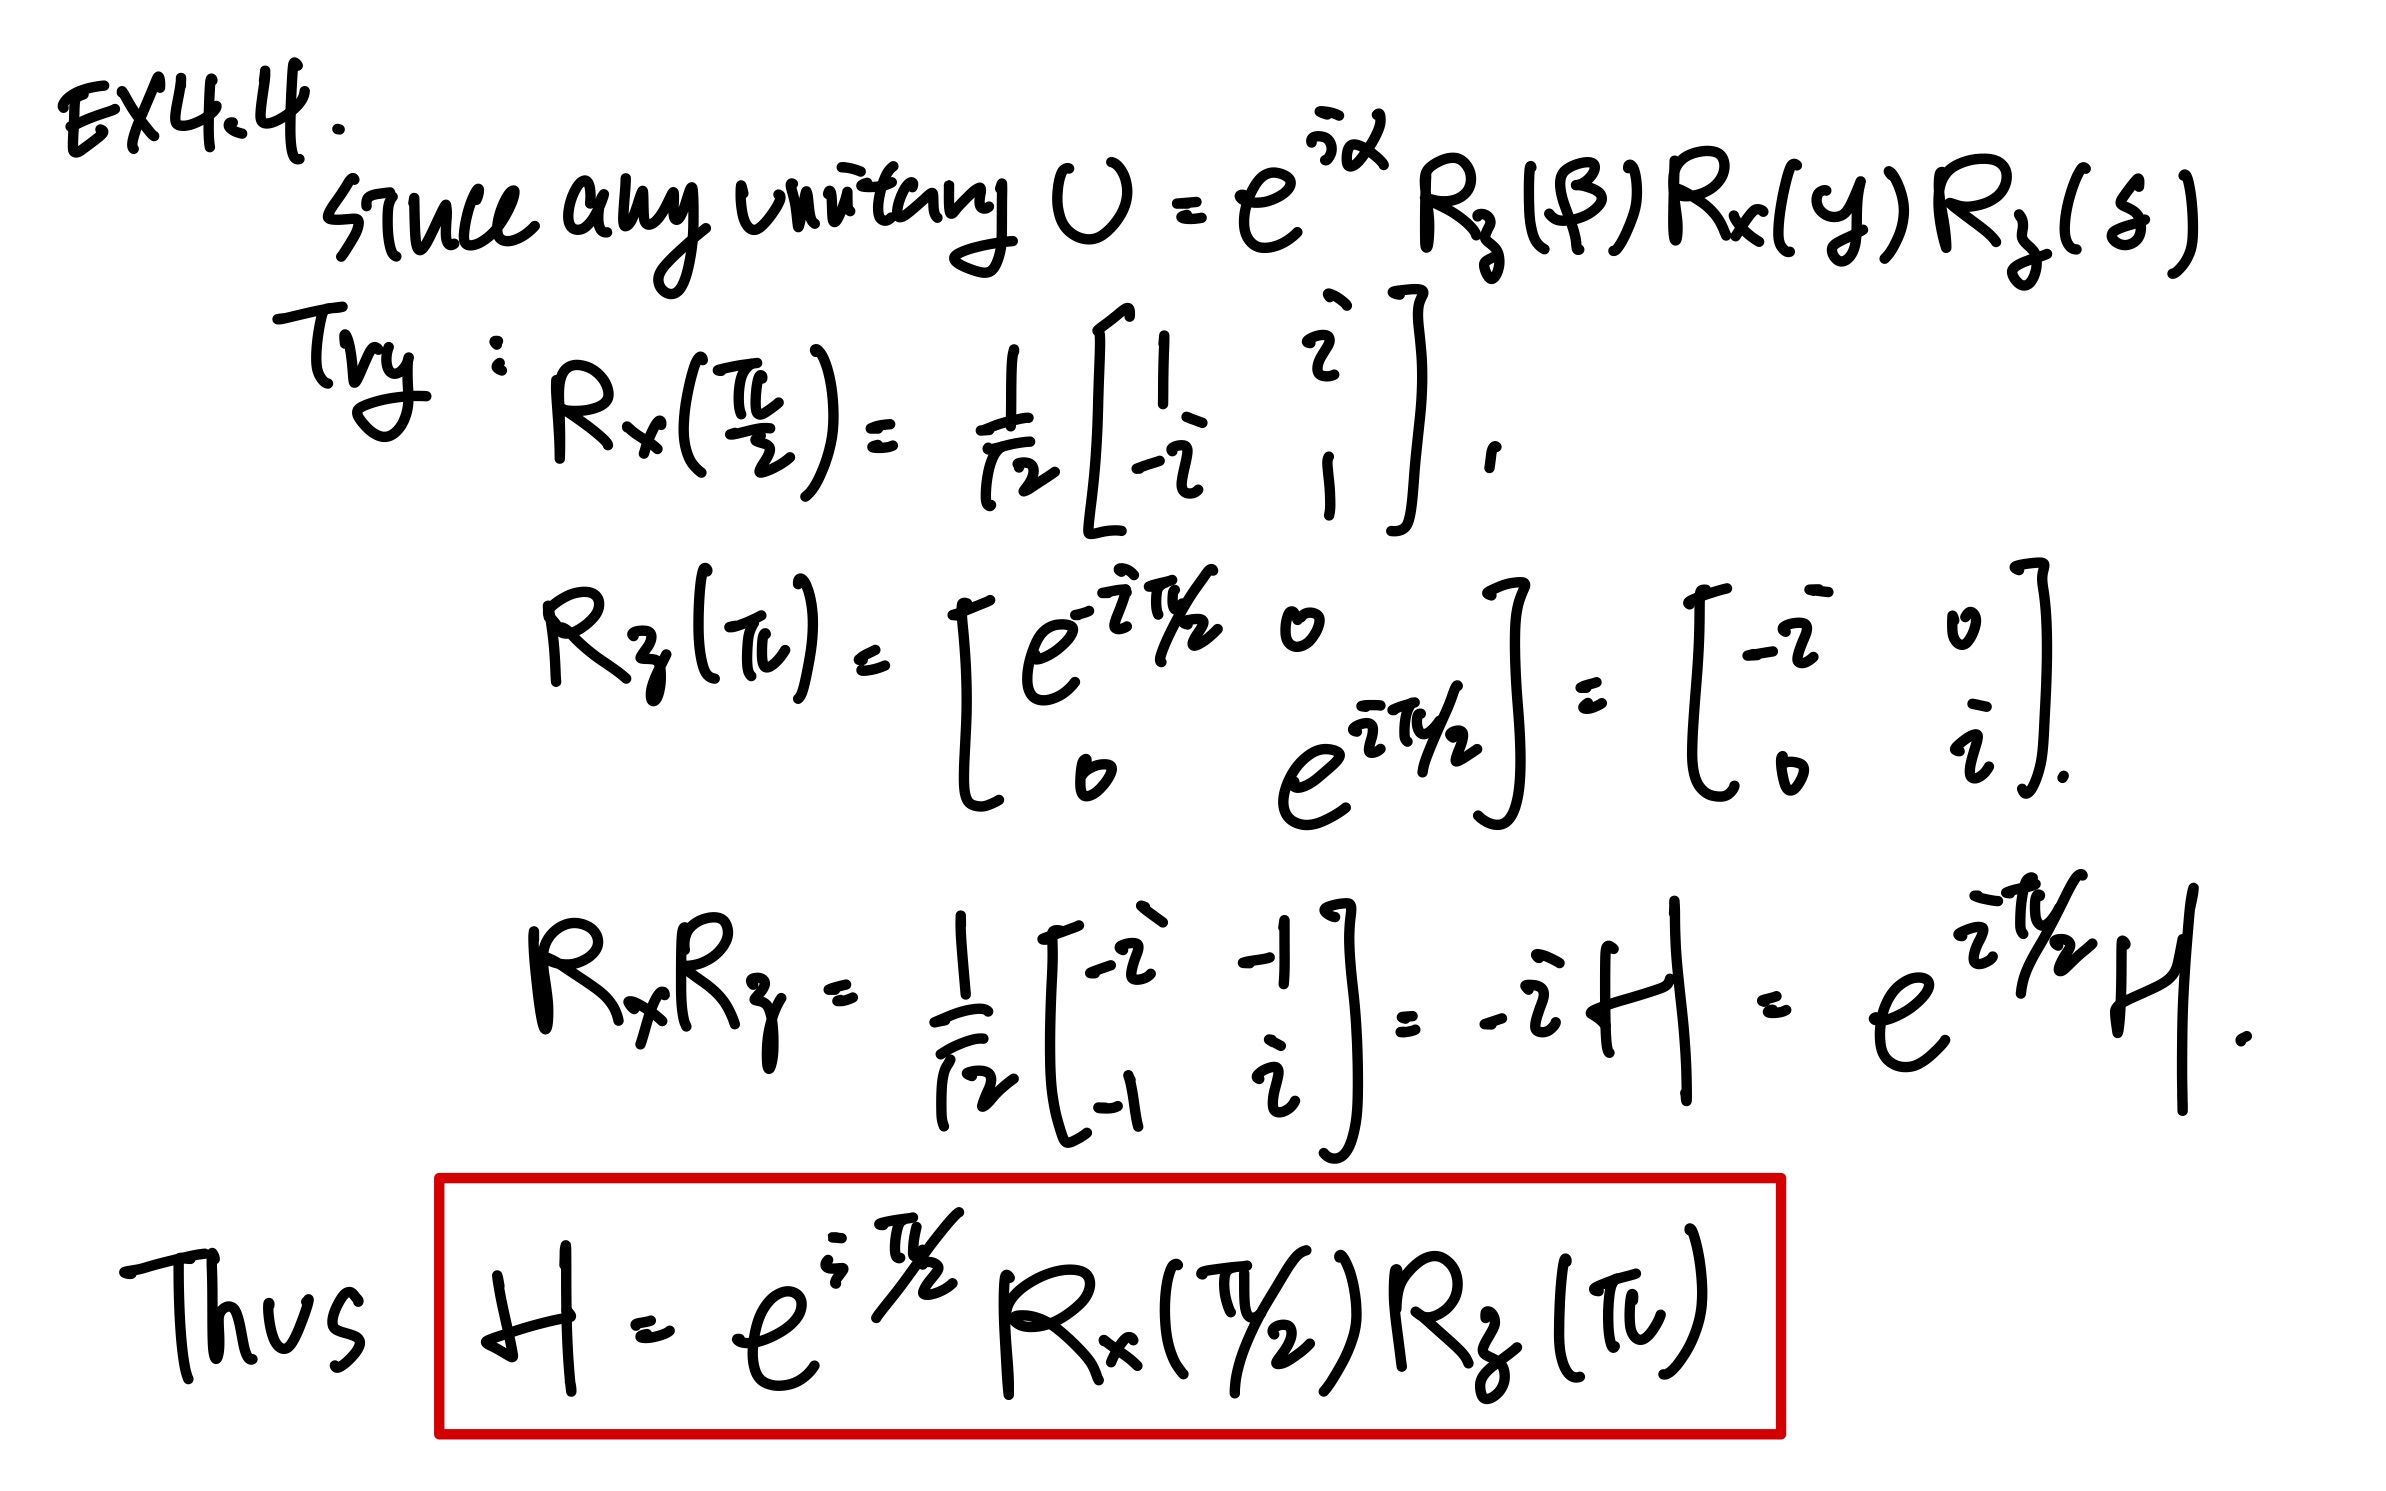 EX4.4.
since any unitary U = e^{iα} R_z(β) R_x(γ) R_z(δ)
Try : R_x(π/2) = 1/√2 [ 1 i ; -i 1 ] ,
R_z(π) = [ e^{-iπ/2} 0 ; 0 e^{iπ/2} ] = [ -i 0 ; 0 i ] .
R_x R_z = 1/√2 [ -i -1 ; -1 i ] = -iH = e^{-iπ/2} H .
Thus H = e^{iπ/2} R_x(π/2) R_z(π)